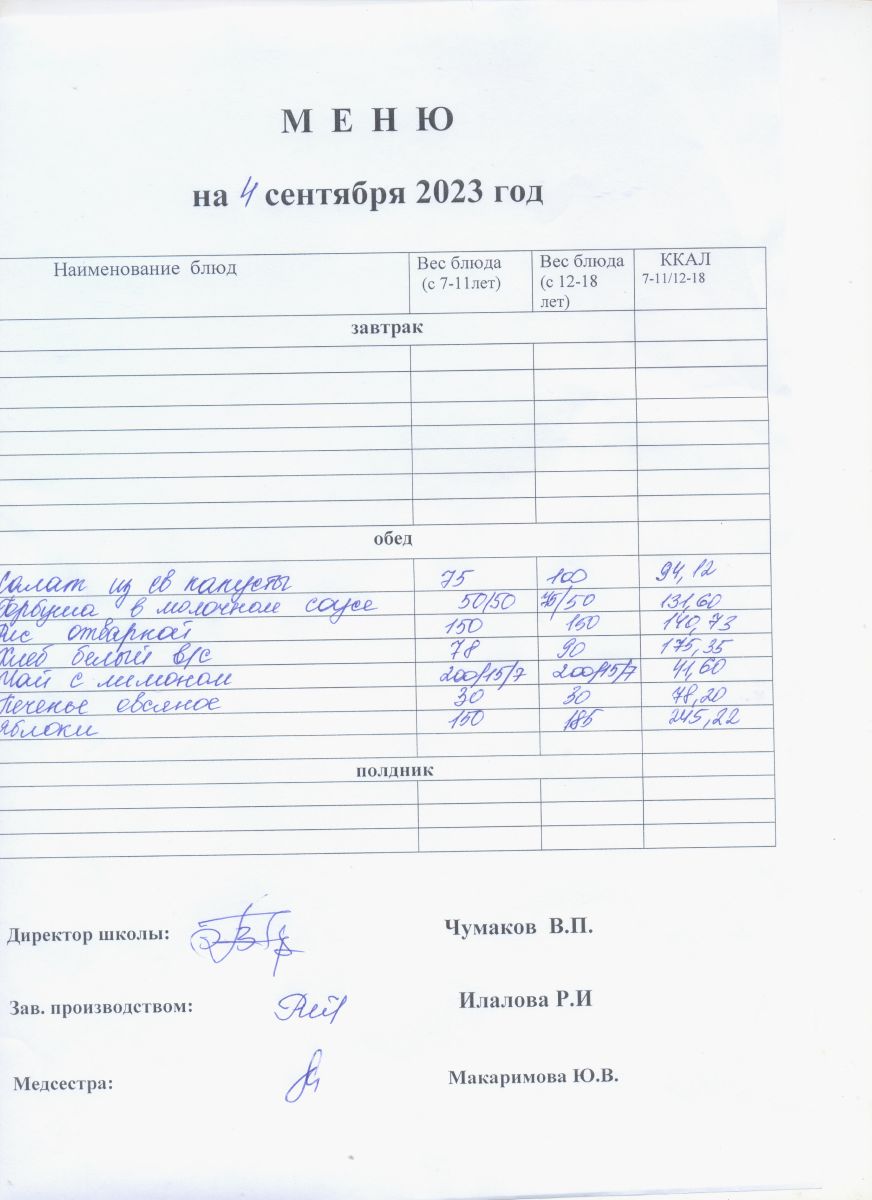 М Е Н Ю
на 4 сентября 2023 год
Наименование блюд Вес блюда (с 7-11лет) Вес блюда (с 12-18 лет) ККАЛ 7-11/12-18
завтрак
обед
Салат из св капусты 75 100 94,12
Горбуша в молочном соусе 50/50 75/50 131,60
Рис отварной 150 150 140,73
Хлеб белый в/с 78 90 175,35
Чай с лимоном 200/15/7 200/15/7 41,60
Печенье овсяное 30 30 78,20
Яблоки 150 185 245,22
полдник
Директор школы: Чумаков В.П.
Зав. производством: Илалова Р.И
Медсестра: Макаримова Ю.В.